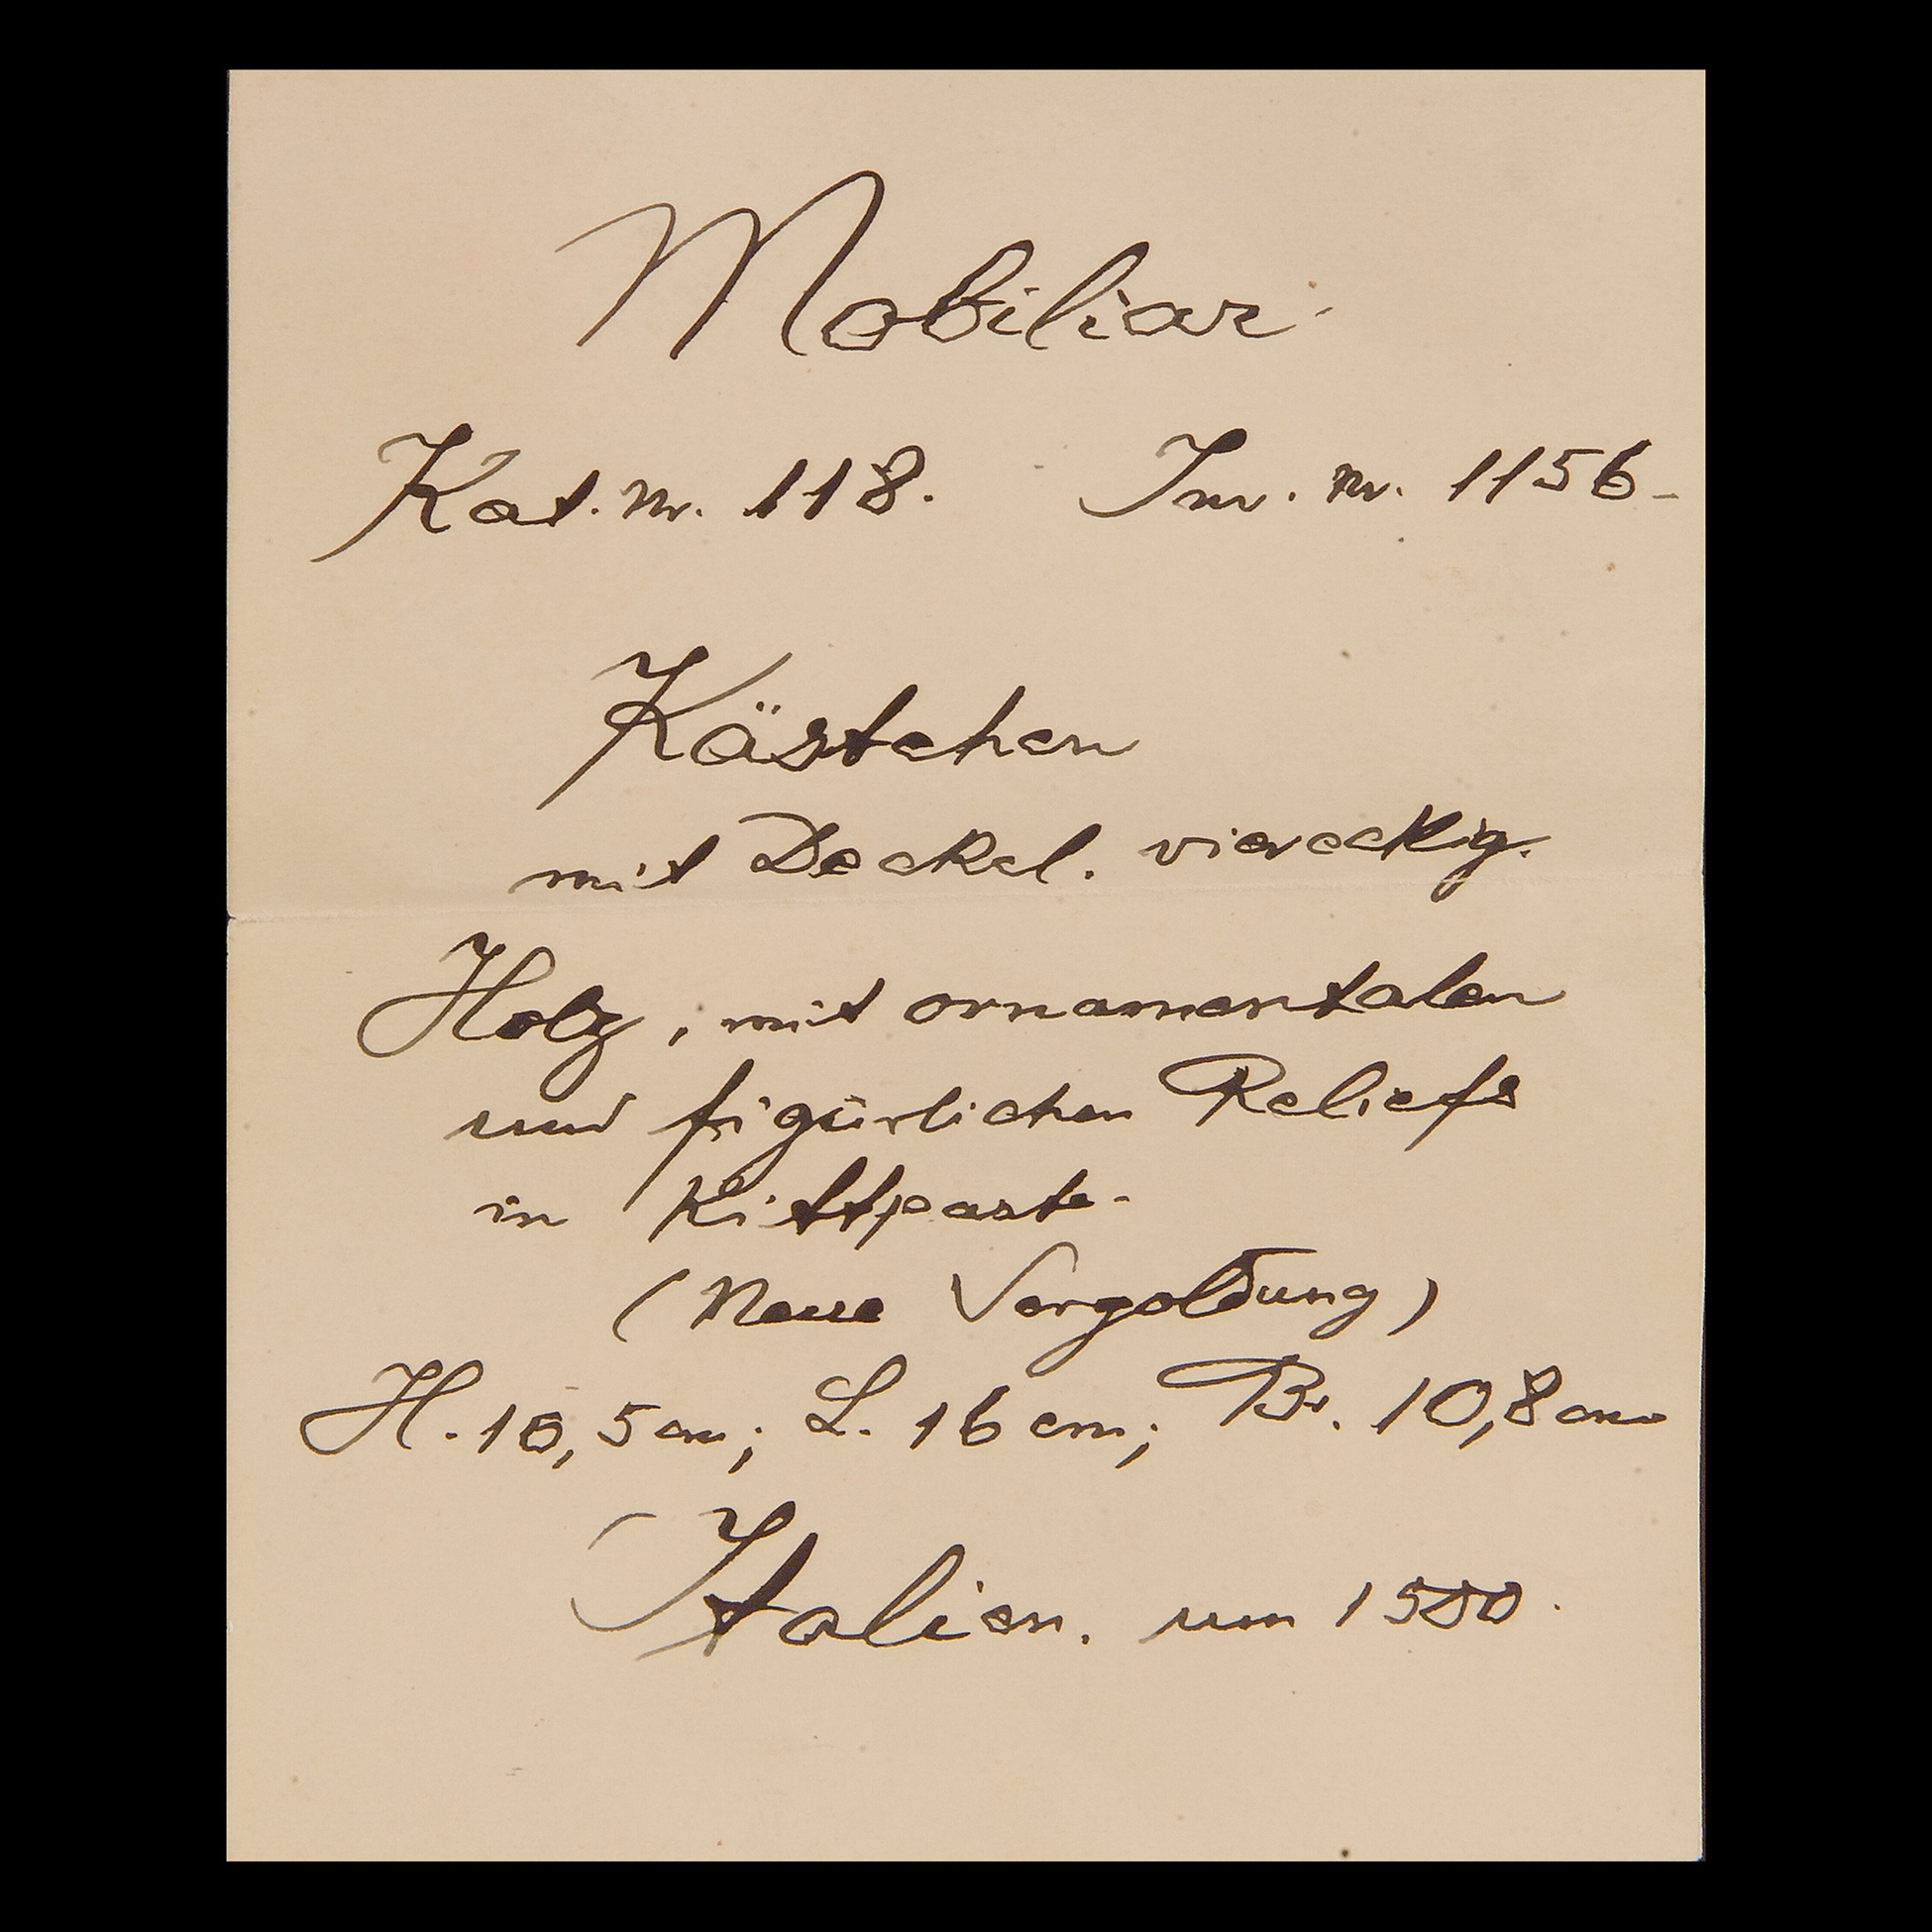 Mobiliar.
Kat. Nr. 118. Inv. Nr. 1156-
Kästchen
mit Deckel. viereckig.
Holz, mit ornamentalen
und figürlichen Reliefs
in Kittpaste.
(Neue Vergoldung)
H. 10,5 cm; L. 16 cm; Br. 10,8 cm
Italien. um 1500.